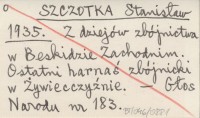 o
SZCZOTKA Stanisław
1935. Z dziejów zbójnictwa
w Beskidzie Zachodnim.
Ostatni harnaś zbójnicki
w Żywiecczyźnie. — Głos
Narodu nr 183.